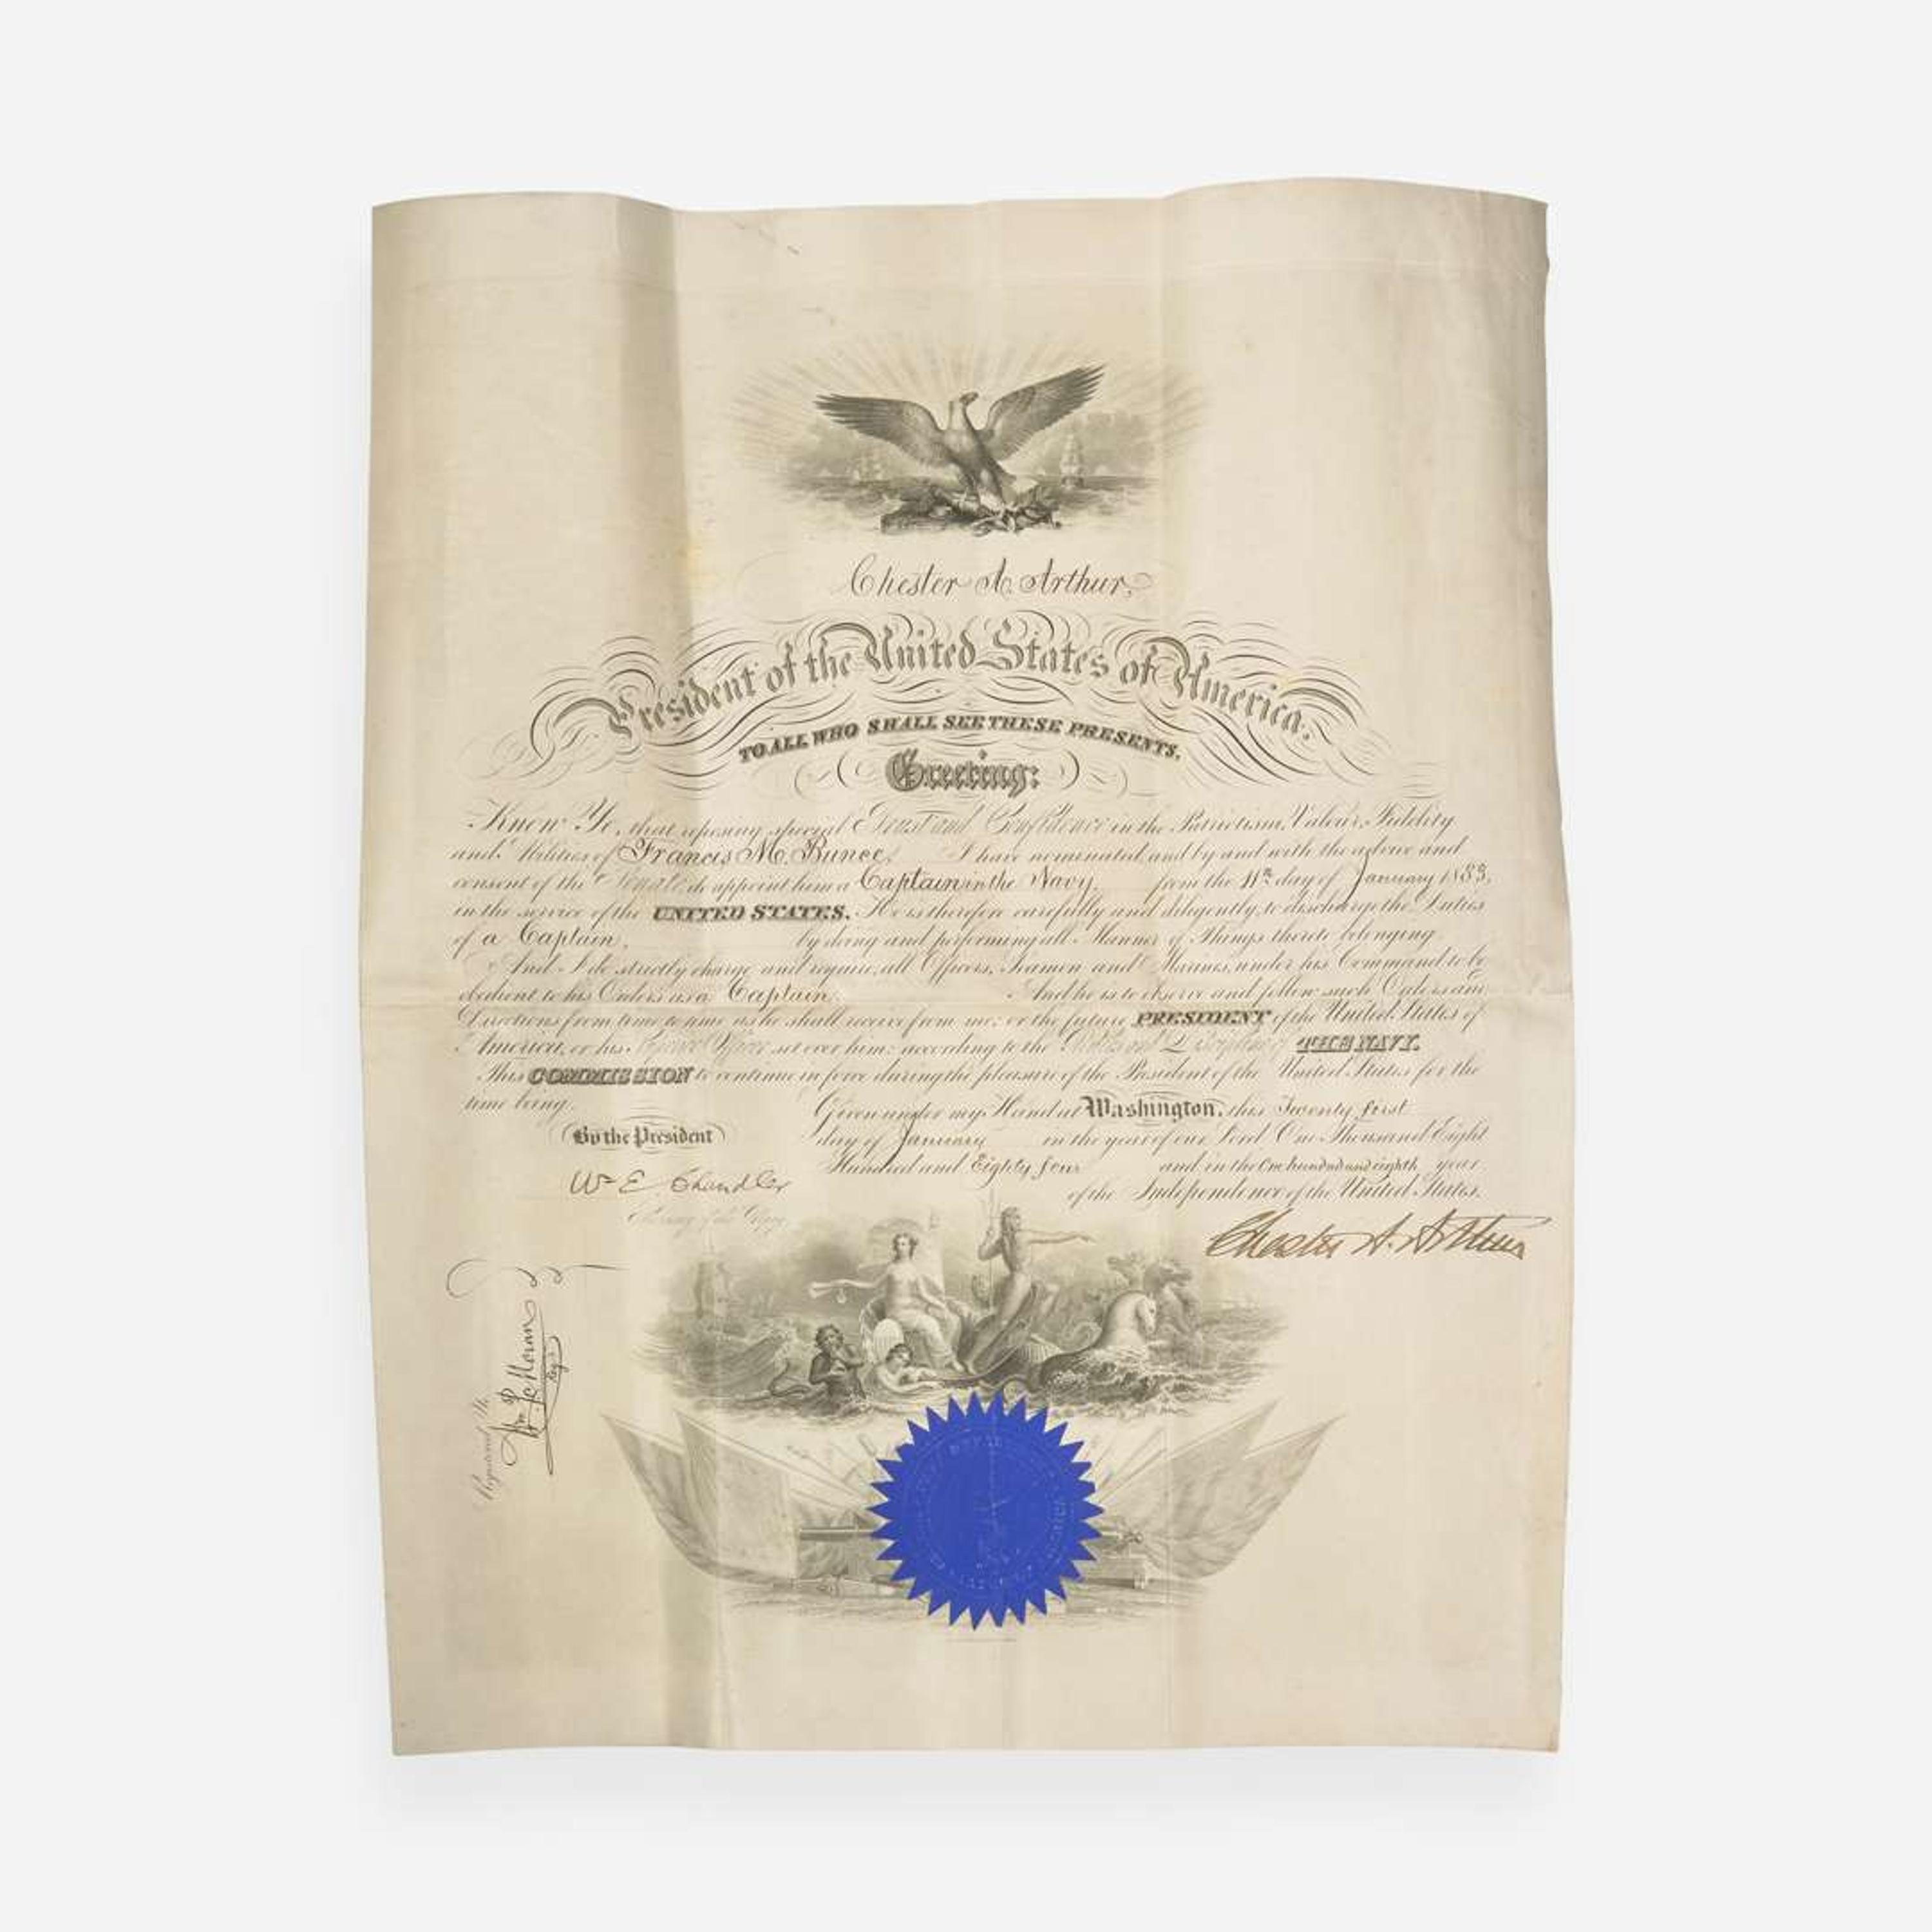 Chester A. Arthur,
President of the United States of America.
TO ALL WHO SHALL SEE THESE PRESENTS,
Greeting:
Know Ye, that reposing special Trust and Confidence in the Patriotism, Valour, Fidelity
and Abilities of Francis M. Bunce, I have nominated and by and with the advice and
consent of the Senate do appoint him a Captain in the Navy, from the 11th day of January 1883,
in the service of the UNITED STATES. He is therefore carefully and diligently to discharge the Duties
of a Captain, by doing and performing all Manner of Things thereto belonging
And I do strictly charge and require all Officers, Seamen and Marines, under his Command to be
obedient to his Orders as a Captain. And he is to observe and follow such Orders and
Directions from time to time as he shall receive from me, or the future PRESIDENT of the United States of
America, or his Superior Officer set over him, according to the Rules and Discipline of THE NAVY.
This COMMISSION to continue in force during the pleasure of the President of the United States for the
time being.
Given under my Hand at Washington, this Twenty first
By the President
day of January in the year of our Lord One Thousand Eight
Hundred and Eighty four and in the One hundred and eighth year
Wm E. Chandler
of the Independence of the United States.
Secretary of the Navy
Chester A. Arthur
Registered